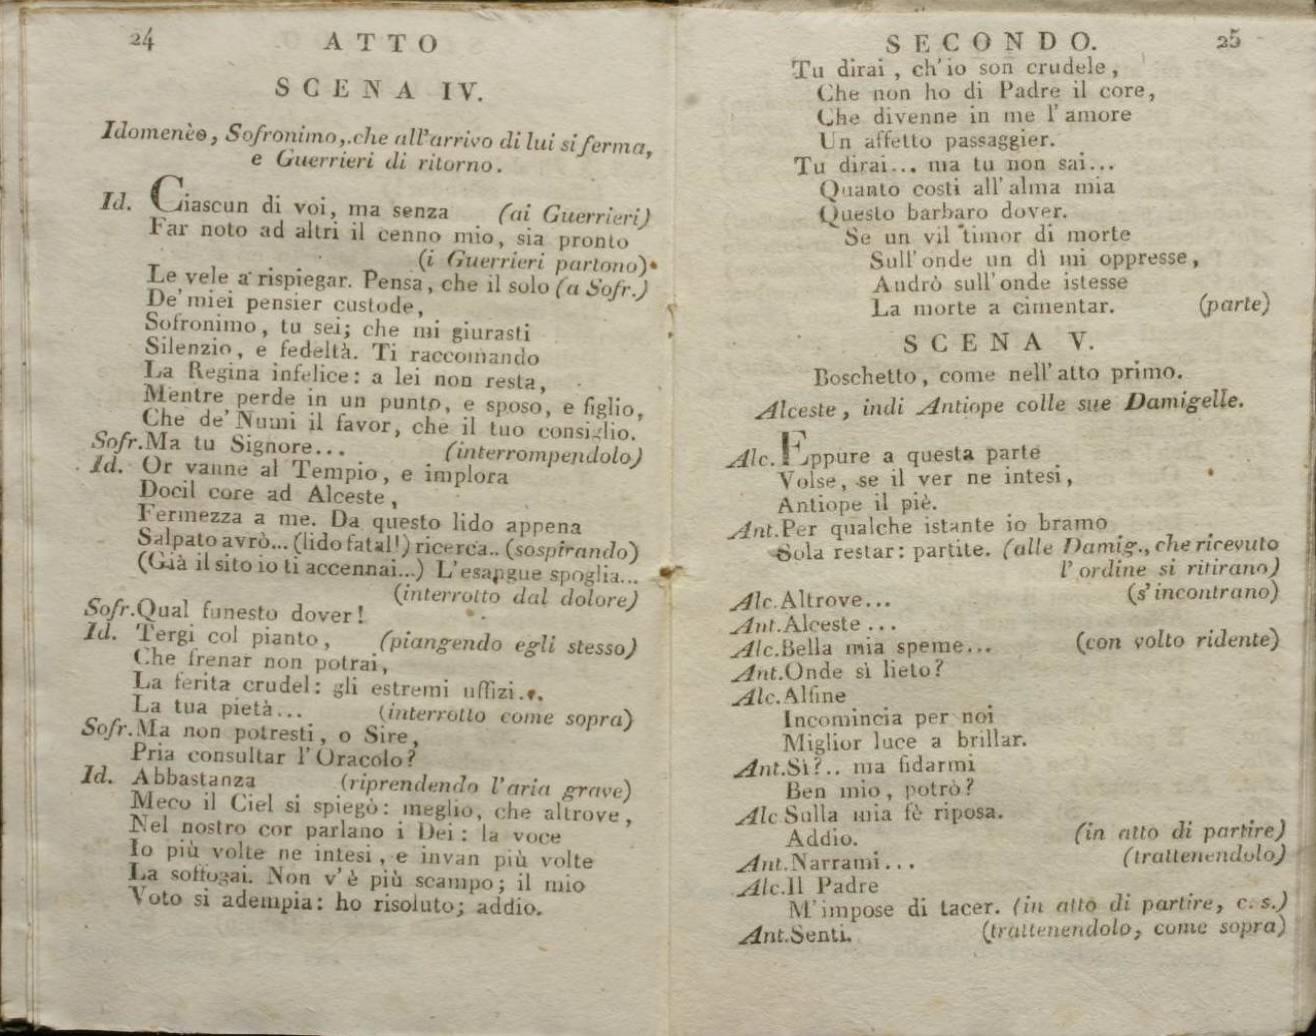 24 ATTO
SCENA IV.
Idomenèo, Sofronimo, che all'arrivo di lui si ferma,
e Guerrieri di ritorno.
Id. Ciascun di voi, ma senza (ai Guerrieri)
Far noto ad altri il cenno mio, sia pronto
(i Guerrieri partono)
Le vele a rispiegar. Pensa, che il solo (a Sofr.)
De' miei pensier custode,
Sofronimo, tu sei; che mi giurasti
Silenzio, e fedeltà. Ti raccomando
La Regina infelice: a lei non resta,
Mentre perde in un punto, e sposo, e figlio,
Che de' Numi il favor, che il tuo consiglio.
Sofr. Ma tu Signore... (interrompendolo)
Id. Or vanne al Tempio, e implora
Docil core ad Alceste,
Fermezza a me. Da questo lido appena
Salpato avrò... (lido fatal!) ricerca.. (sospirando)
(Già il sito io ti accennai...) L'esangue spoglia...
(interrotto dal dolore)
Sofr. Qual funesto dover!
Id. Tergi col pianto, (piangendo egli stesso)
Che frenar non potrai,
La ferita crudel: gli estremi uffizi...
La tua pietà... (interrotto come sopra)
Sofr. Ma non potresti, o Sire,
Pria consultar l'Oracolo?
Id. Abbastanza (riprendendo l'aria grave)
Meco il Ciel si spiegò: meglio, che altrove,
Nel nostro cor parlano i Dei: la voce
Io più volte ne intesi, e invan più volte
La soffogai. Non v'è più scampo; il mio
Voto si adempia: ho risoluto; addio.
SECONDO. 25
Tu dirai, ch'io son crudele,
Che non ho di Padre il core,
Che divenne in me l'amore
Un affetto passaggier.
Tu dirai... ma tu non sai...
Quanto costi all'alma mia
Questo barbaro dover.
Se un vil timor di morte
Sull'onde un dì mi oppresse,
Andrò sull'onde istesse
La morte a cimentar. (parte)
SCENA V.
Boschetto, come nell'atto primo.
Alceste, indi Antiope colle sue Damigelle.
Alc. Eppure a questa parte
Volse, se il ver ne intesi,
Antiope il piè.
Ant. Per qualche istante io bramo
Sola restar: partite. (alle Damig., che ricevuto
l'ordine si ritirano)
Alc. Altrove... (s'incontrano)
Ant. Alceste...
Alc. Bella mia speme... (con volto ridente)
Ant. Onde sì lieto?
Alc. Alfine
Incomincia per noi
Miglior luce a brillar.
Ant. Sì?.. ma fidarmi
Ben mio, potrò?
Alc Sulla mia fè riposa.
Addio. (in atto di partire)
Ant. Narrami... (trattenendolo)
Alc. Il Padre
M'impose di tacer. (in atto di partire, c. s.)
Ant. Senti. (trattenendolo, come sopra)